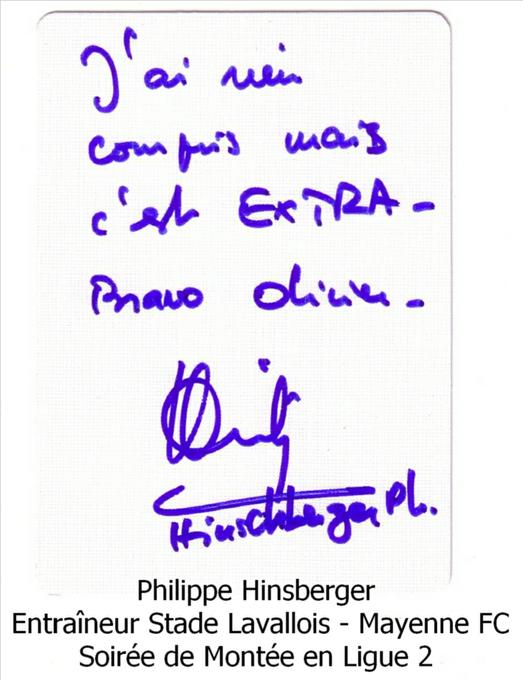 J'ai rien
compris mais
c'est EXTRA -
Bravo Olivier -
Hinschberger Ph.
Philippe Hinsberger
Entraîneur Stade Lavallois - Mayenne FC
Soirée de Montée en Ligue 2